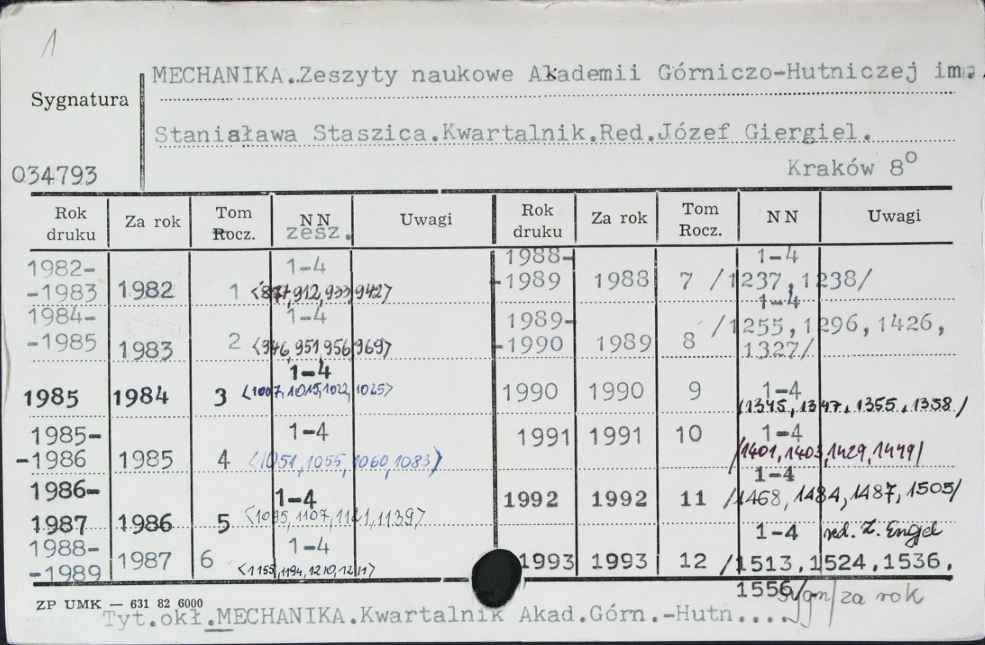 1
MECHANIKA.Zeszyty naukowe Akademii Górniczo-Hutniczej im.
Sygnatura
Stanisława Staszica.Kwartalnik.Red.Józef Giergiel.
034793 Kraków 8°
Rok druku Za rok Tom Rocz. NN zesz. Uwagi Rok druku Za rok Tom Rocz. NN Uwagi
1982-
-1983 1982 1 1-4 912,933,942>
1984-
-1985 1983 2 1-4 <946,951,956,969>
1985 1984 3 1-4 <1007,1015,1022,1025>
1985-
-1986 1985 4 1-4 <1051,1055,1060,1083>
1986-
1987 1986 5 1-4 <1095,1107,1121,1139>
1988-
-1989 1987 6 1-4 <1155,1194,1210,1211>
1988-
-1989 1988 7 1-4 /1237,1238/
1989-
-1990 1989 8 1-4 /1255,1296,1426,
1327/
1990 1990 9 1-4 /1345,1347,1355,1358/
1991 1991 10 1-4 /1401,1403,1429,1449/
1992 1992 11 1-4 /1468,1484,1487,1505/
1993 1993 12 1-4 red. Z. Engel
/1513,1524,1536,
1556/ sygn/za rok
ZP UMK — 631 82 6000
Tyt.okł.MECHANIKA.Kwartalnik Akad.Górn.-Hutn....